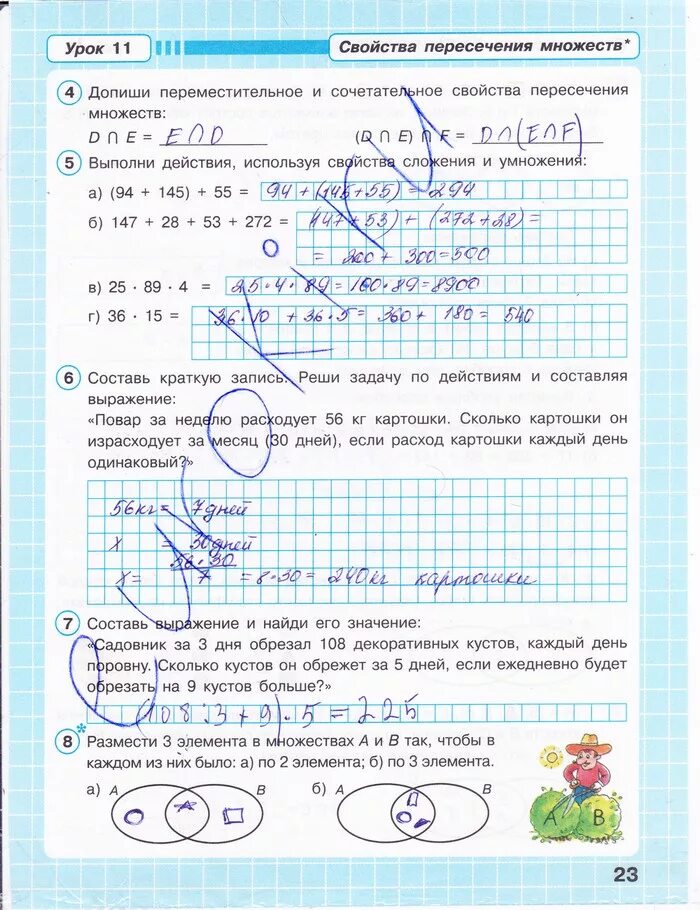 Урок 11
Свойства пересечения множеств*
4 Допиши переместительное и сочетательное свойства пересечения
множеств:
D ∩ E = E∩D (D ∩ E) ∩ F = D∩(E∩F)
5 Выполни действия, используя свойства сложения и умножения:
а) (94 + 145) + 55 = 94 + (145 + 55) = 294
б) 147 + 28 + 53 + 272 = (147 + 53) + (272 + 28) =
= 200 + 300 = 500
в) 25 · 89 · 4 = 25 · 4 · 89 = 100 · 89 = 8900
г) 36 · 15 = 36 · 10 + 36 · 5 = 360 + 180 = 540
6 Составь краткую запись. Реши задачу по действиям и составляя
выражение:
«Повар за неделю расходует 56 кг картошки. Сколько картошки он
израсходует за месяц (30 дней), если расход картошки каждый день
одинаковый?»
56кг = 7 дней
х = 30 дней
56·30
х = 7 = 8·30 = 240кг картошки
7 Составь выражение и найди его значение:
«Садовник за 3 дня обрезал 108 декоративных кустов, каждый день
поровну. Сколько кустов он обрежет за 5 дней, если ежедневно будет
обрезать на 9 кустов больше?»
(108 : 3 + 9) · 5 = 225
8* Размести 3 элемента в множествах A и B так, чтобы в
каждом из них было: а) по 2 элемента; б) по 3 элемента.
а) A B б) A B
A B
23